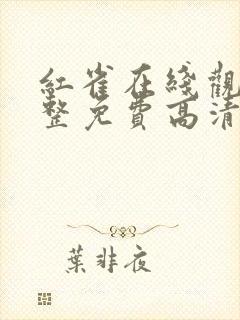 紅雀在綫觀
整免費高清
葉非夜